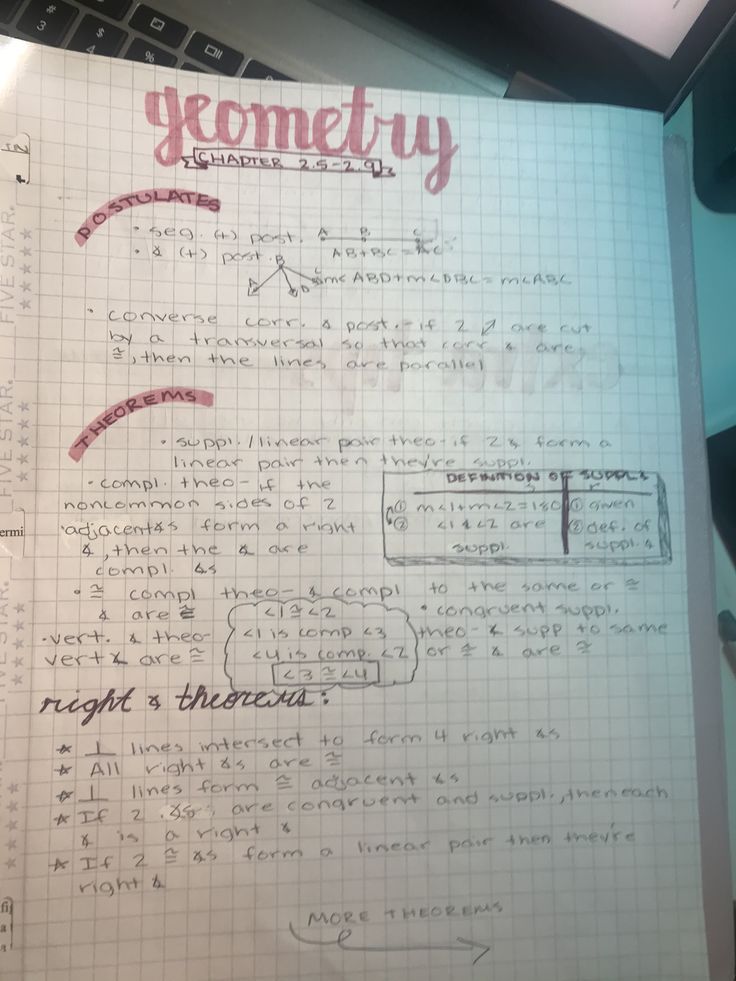 geometry
CHAPTER 2.5-2.9
POSTULATES
• seg. (+) post. A B C
AB+BC=AC
• ∡ (+) post. B
A D C m<ABD+m<DBC=m<ABC
• converse corr. ∡ post.-if 2 are cut
by a transversal so that corr ∡ are
≅, then the lines are parallel
THEOREMS
• suppl./linear pair theo-if 2 ∡ form a
linear pair then they're suppl.
• compl. theo-if the
noncommon sides of 2
adjacent ∡s form a right
∡, then the ∡ are
compl. ∡s
DEFINITION OF SUPPL ∡
S r
① m<1+m<2=180 ① given
② <1 & <2 are ② def. of
suppl. suppl. ∡
• ≅ compl theo- ∡ compl to the same or ≅
∡ are ≅
<1≅<2
<1 is comp <3
<4 is comp. <2
<3≅<4
• congruent suppl.
theo-∡ supp to same
or ≅ ∡ are ≅
• vert. ∡ theo-
vert ∡ are ≅
right ∡ theorems:
☆ ⊥ lines intersect to form 4 right ∡s
☆ All right ∡s are ≅
☆ ⊥ lines form ≅ adjacent ∡s
☆ If 2 ∡s are congruent and suppl., then each
∡ is a right ∡
☆ If 2 ≅ ∡s form a linear pair then they're
right ∡
MORE THEOREMS
FIVE STAR.
FIVE STAR.
FIVE STAR.
ermi
3
4
%